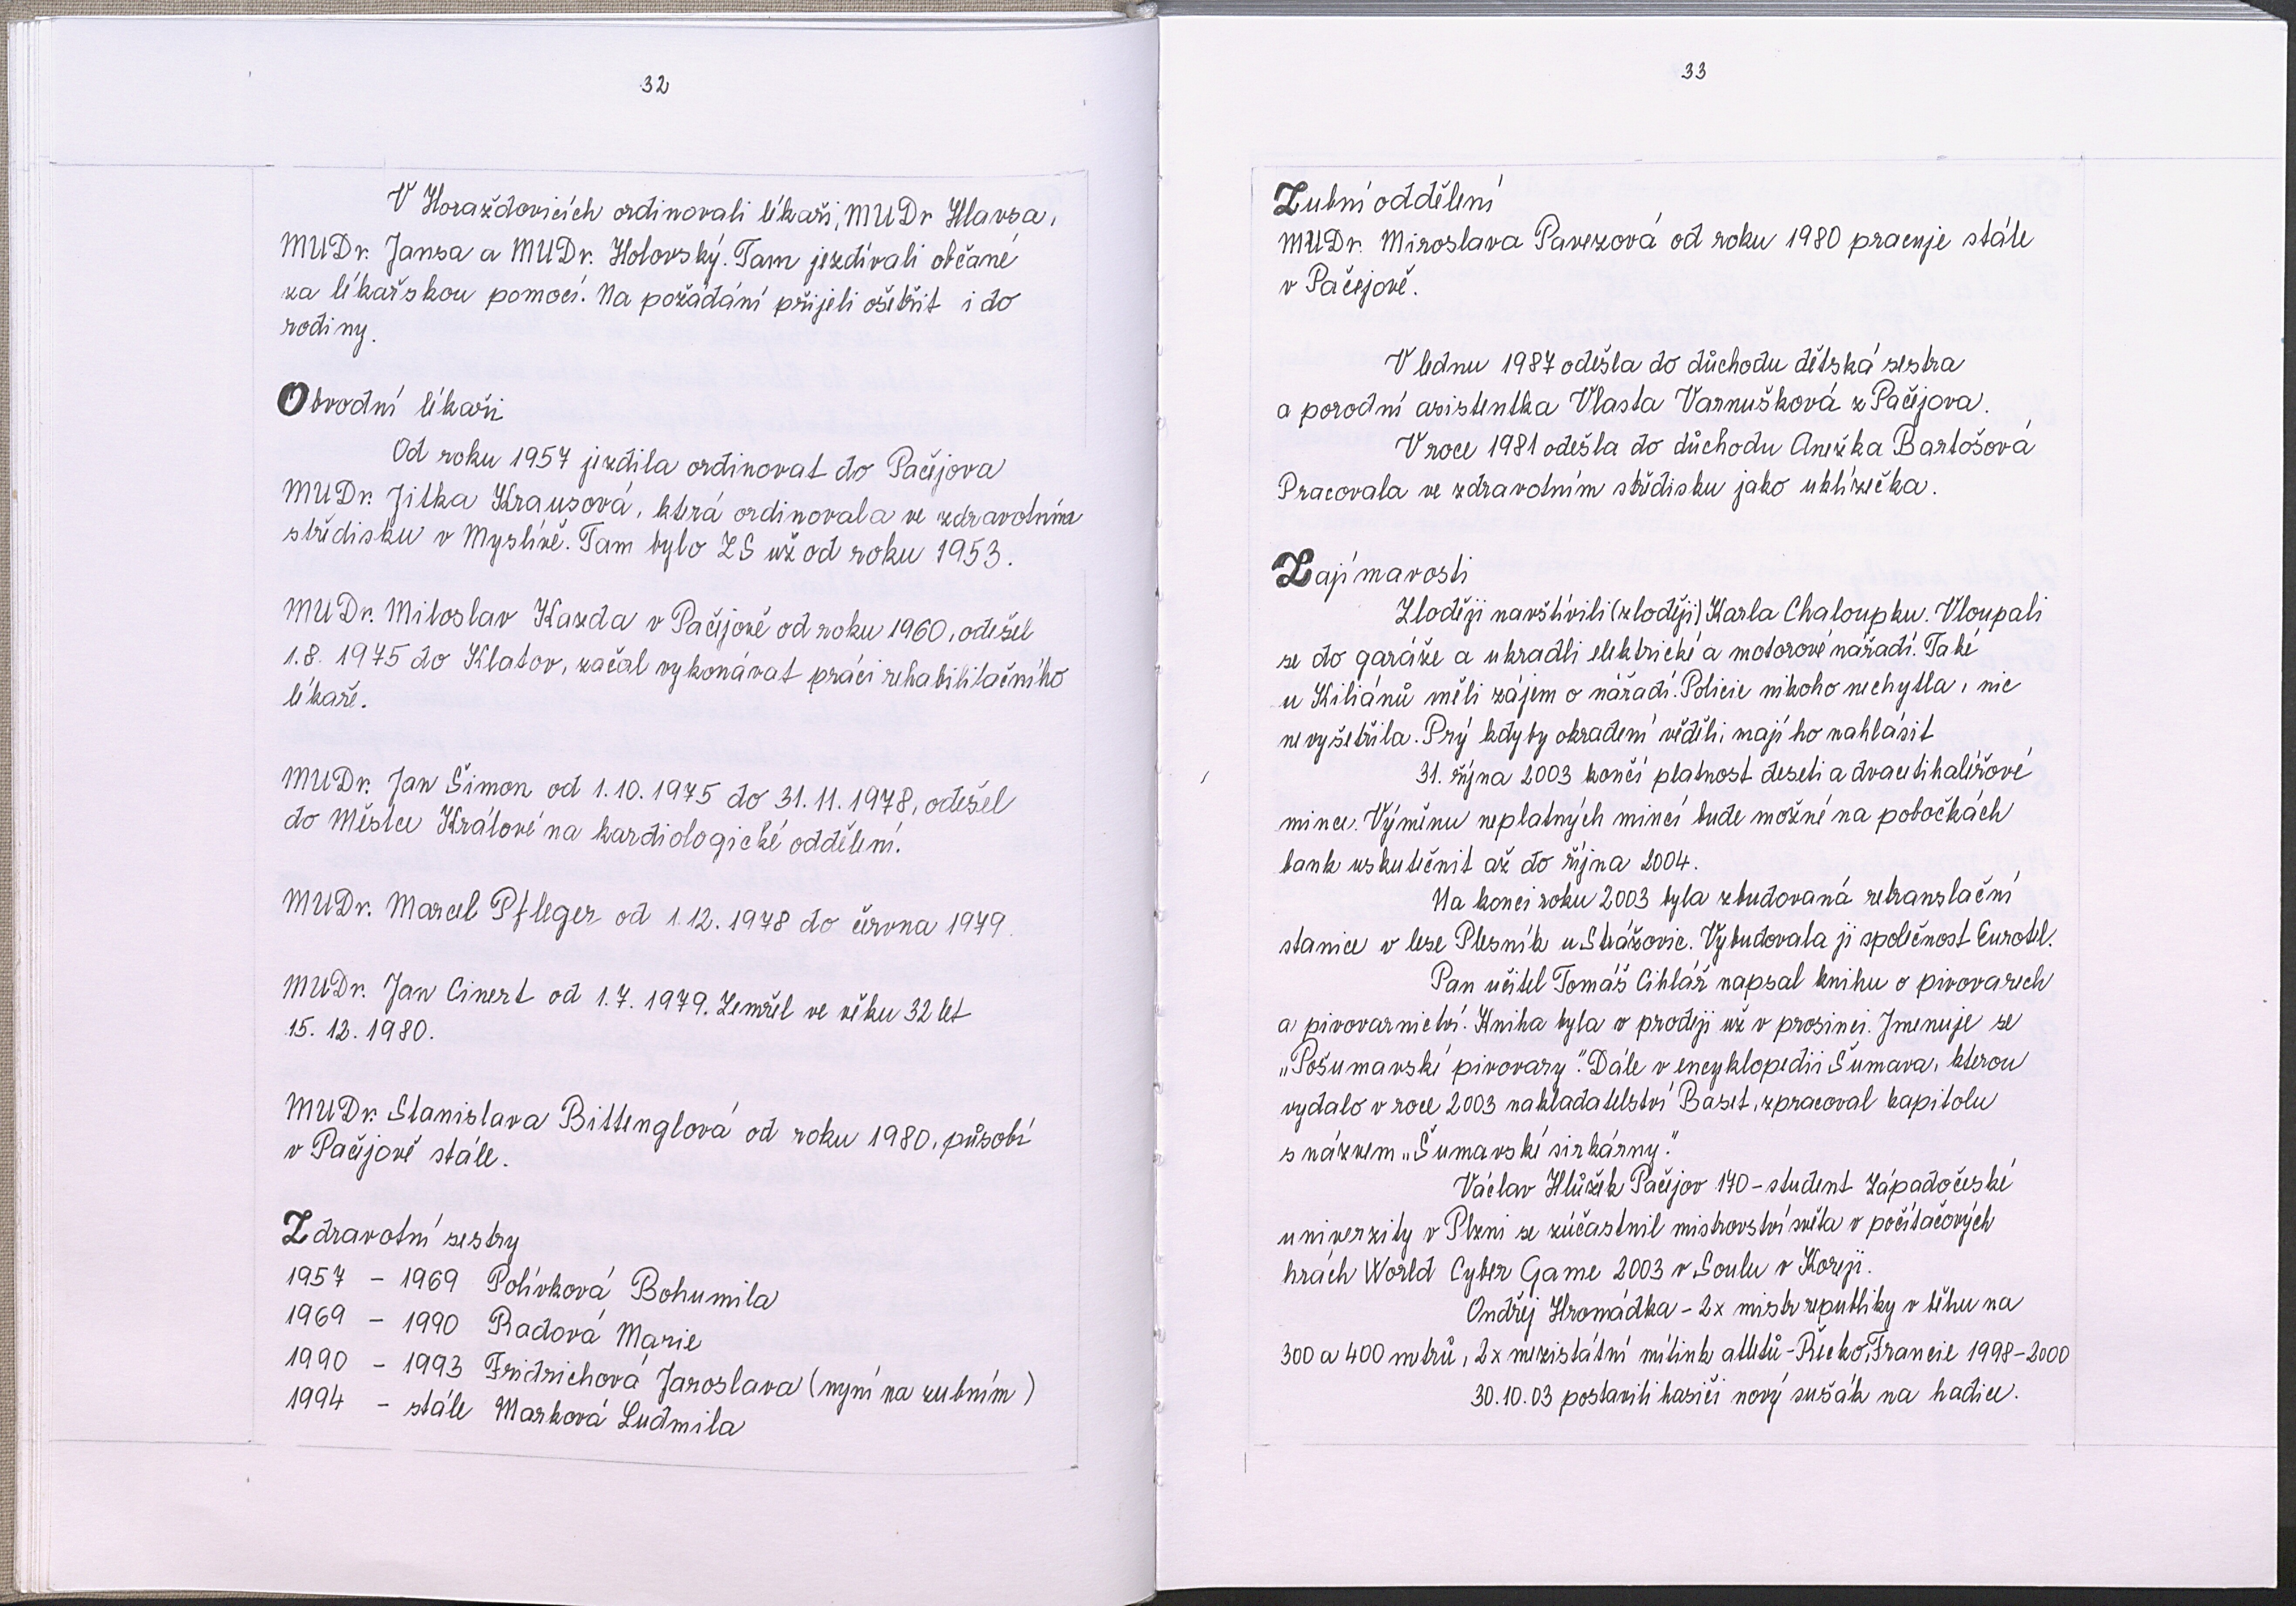 32
V Horažďovicích ordinovali lékaři, MUDr Hlavsa,
MUDr. Jansa a MUDr. Holovský. Tam jezdívali občané
za lékařskou pomocí. Na požádání přijeli ošetřit i do
rodiny.
Obvodní lékaři
Od roku 1957 jezdila ordinovat do Pačejova
MUDr. Jitka Krausová, která ordinovala ve zdravotním
středisku v Myslívě. Tam bylo ZS už od roku 1953.
MUDr. Miloslav Kazda v Pačejově od roku 1960, odešel
1.8. 1975 do Klatov, začal vykonávat práci rehabilitačního
lékaře.
MUDr. Jan Šimon od 1.10.1975 do 31.11.1978, odešel
do Městce Králové na kardiologické oddělení.
MUDr. Marcel Pfleger od 1.12.1978 do června 1979.
MUDr. Jan Cinert od 1.7.1979. Zemřel ve věku 32 let
15.12.1980.
MUDr. Stanislava Bittenglová od roku 1980, působí
v Pačejově stále.
Zdravotní sestry
1957 - 1969 Polívková Bohumila
1969 - 1990 Radová Marie
1990 - 1993 Fridrichová Jaroslava (nyní na zubním)
1994 - stále Marková Ludmila
33
Zubní oddělení
MUDr. Miroslava Pavezová od roku 1980 pracuje stále
v Pačejově.
V lednu 1987 odešla do důchodu dětská sestra
a porodní asistentka Vlasta Varnušková z Pačejova.
V roce 1981 odešla do důchodu Anežka Bartošová
Pracovala ve zdravotním středisku jako uklízečka.
Zajímavosti
Zloději navštívili (zloději) Karla Chaloupku. Vloupali
se do garáže a ukradli elektrické a motorové nářadí. Také
u Kiliánů měli zájem o nářadí. Policie nikoho nechytla, nic
nevyšetřila. Prý kdyby okradení věděli, mají ho nahlásit
31. října 2003 končí platnost deseti a dvacetihaléřové
mince. Výměnu neplatných mincí bude možné na pobočkách
bank uskutečnit až do října 2004.
Na konci roku 2003 byla zbudovaná retranslační
stanice v lese Plesník u Strážovic. Vybudovala ji společnost Eurotel.
Pan učitel Tomáš Cihlář napsal knihu o pivovarech
a pivovarnictví. Kniha byla v prodeji už v prosinci. Jmenuje se
„Pošumavské pivovary". Dále v encyklopedii Šumava, kterou
vydalo v roce 2003 nakladatelství Baset, zpracoval kapitolu
s názvem „Šumavské sirkárny."
Václav Hlůžek Pačejov 170 - student Západočeské
univerzity v Plzni se zúčastnil mistrovství světa v počítačových
hrách World Cyber Game 2003 v Soulu v Koreji.
Ondřej Hromádka - 2x mistr republiky v běhu na
300 a 400 metrů, 2x mezistátní mítink atletů - Řecko, Francie 1998-2000
30.10.03 postavili hasiči nový sušák na hadice.